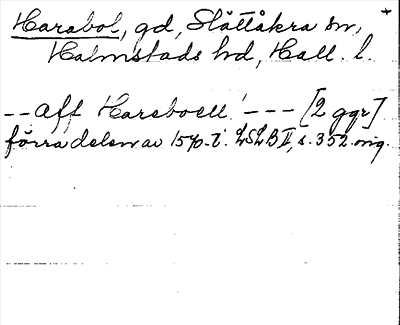 Harabol, gd, Slättåkra sn,
Halmstads hd, Hall. l.
-- aff Hareboell! --- [2 ggr]
förra delen av 1570-t. LSLB II, s. 352 orig.